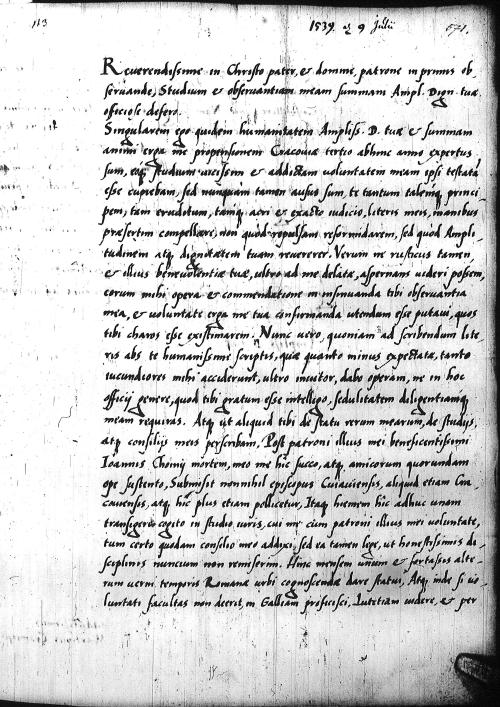 113
1539. 9 Julii
571.
Reuerendissime in Christo pater, & domine, patrone in primis ob-
seruande, Studium & obseruantiam meam summam Ampl. Dign. tuæ
officiose defero.
Singularem ego quidem humanitatem Ampliss. D. tuæ & summam
animi erga me propensionem Cracouiæ tertio abhinc anno expertus
sum, eiq; studium uicissim & addictam uoluntatem meam ipsi testatã
esse cupiebam, sed nunquam tamen ausus sum, te tantum talemq; princi-
pem, tam eruditum, tamq; acri & exacto iudicio, literis meis, inanibus
præsertim compellare, non quod repulsam reformidarem, sed quod Ampli-
tudinem atq; dignitatem tuam reuererer. Verum ne rusticus tamen,
& illius beneuolentiæ tuæ, ultro ad me delatæ, aspernans uideri possem,
eorum mihi opera & commendatione in insinuanda tibi obseruantia
mea, & uoluntate erga me tua confirmanda utendum esse putaui, quos
tibi charos esse existimarem. Nunc uero, quoniam ad scribendum lite-
ris abs te humanissime scriptis, quæ quanto minus expectatæ, tanto
iucundiores mihi acciderunt, ultro inuitor, dabo operam, ne in hoc
officij genere, quod tibi gratum esse intelligo, sedulitatem diligentiamq;
meam requiras. Atq; ut aliquid tibi de statu rerum mearum, de studijs,
atq; consilijs meis perscribam, Post patroni illius mei beneficentissimi
Ioannis Choinij mortem, meo me hic succo, atq; amicorum quorundam
ope sustento, Submisit nonnihil episcopus Cuiauiensis, aliquid etiam Cra-
couiensis, atq; hic plus etiam pollicetur, Itaq; hiemem hic adhuc unam
transigere cogito in studio iuris, cui me cum patroni illius mei uoluntate,
tum certo quodam consilio meo addixi, sed ea tamen lege, ut honestissimis di-
sciplinis nuncium non remiserim. Hinc mensem unum & fortassis alte-
rum uerni temporis Romanæ urbi cognoscendæ dare statui, Atq; inde si uo-
luntati facultas non deerit, in Galliam proficisci, Lutetiam uidere, & per